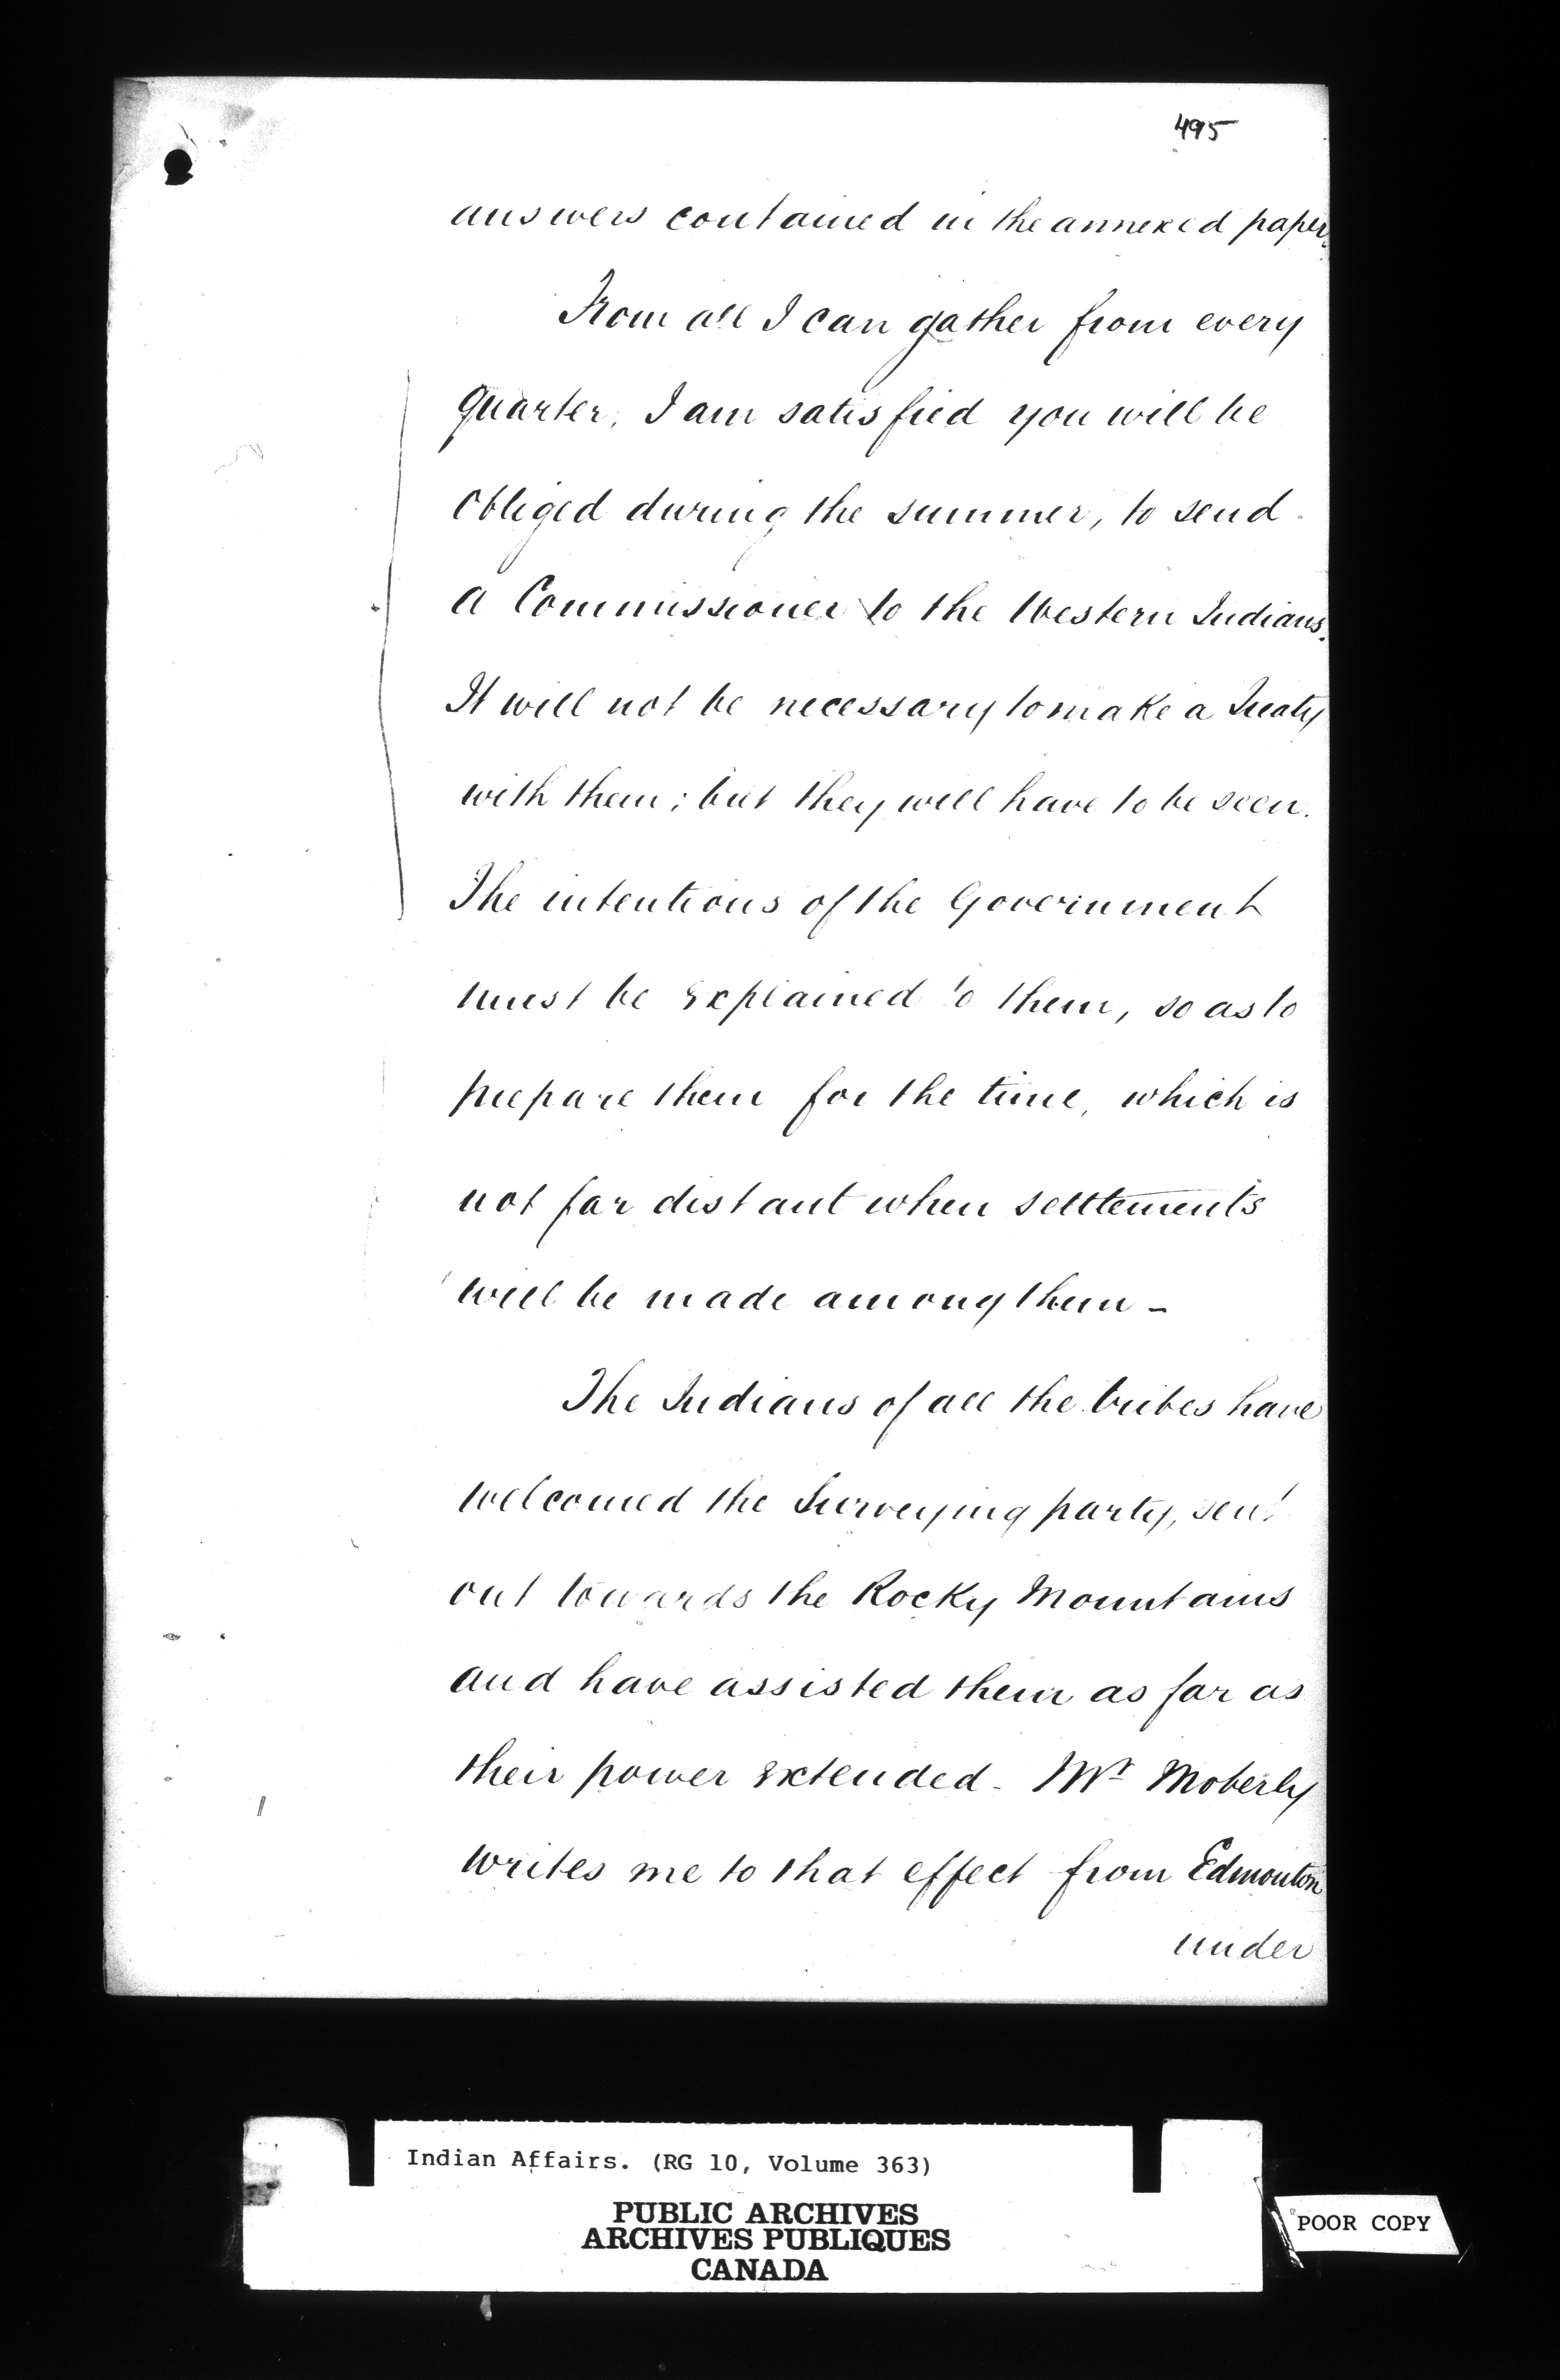 495
answers contained in the annexed paper.
From all I can gather from every
quarter, I am satisfied you will be
obliged during the summer, to send
a Commissioner to the Western Indians.
It will not be necessary to make a Treaty
with them; but they will have to be seen.
The intentions of the Government
must be explained to them, so as to
prepare them for the time, which is
not far distant when settlements
will be made among them -
The Indians of all the tribes have
welcomed the Surveying party, sent
out towards the Rocky Mountains
and have assisted them as far as
their power extended - Mr Moberly
writes me to that effect from Edmonton
under
Indian Affairs. (RG 10, Volume 363)
PUBLIC ARCHIVES
ARCHIVES PUBLIQUES
CANADA
POOR COPY